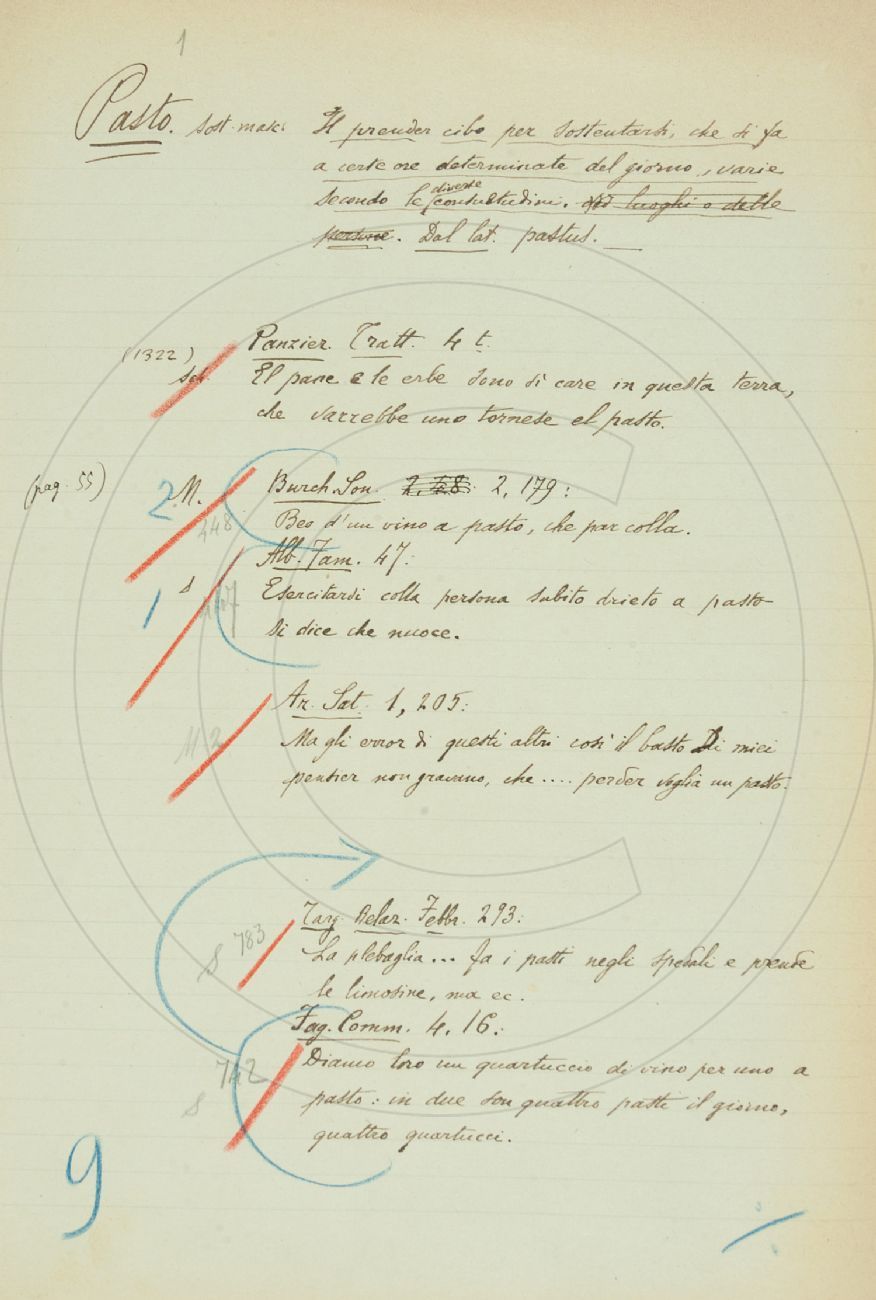 1
Pasto. Sost. masc. Il prender cibo per sostentarsi, che si fa
a certe ore determinate del giorno, varie
secondo le diverse consuetudini. luoghi o delle
persone. Dal lat. pastus.
(1322) Panzier. Tratt. 4 t.
El pane e le erbe sono sì care in questa terra,
che varrebbe uno tornese el pasto.
(pag. 55) 2 M. Burch. Son. 2, 48. 2, 179:
448 Beo d'un vino a pasto, che par colla.
Alb. Fam. 47:
1 s Esercitarsi colla persona subito drieto a pasto
si dice che nuoce.
Ar. Sat. 1, 205:
M 2 Ma gli error di questi altri così il basto Di miei
pensier non gravano, che .... perder voglia un pasto.
Targ. Relaz. Febbr. 293:
S 783 La plebaglia... fa i pasti negli spedali e prende
le limosine, ma ec.
Fag. Comm. 4, 16:
S 742 Diamo loro un quartuccio di vino per uno a
pasto: in due son quattro pasti il giorno,
quattro quartucci.
9